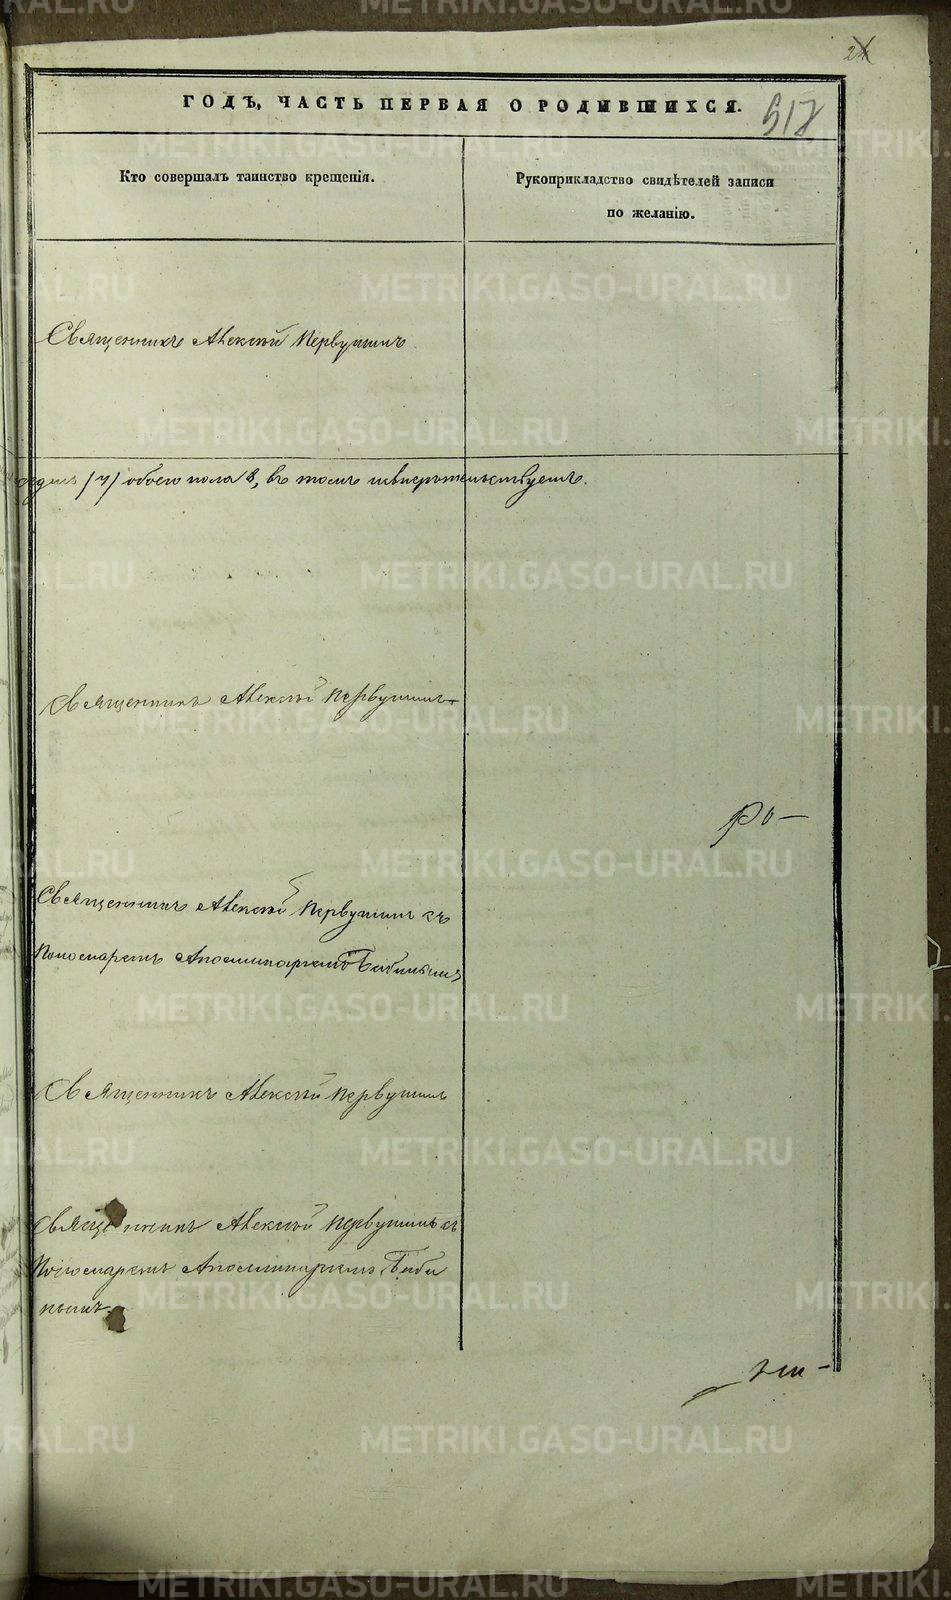 ГОДЪ, ЧАСТЬ ПЕРВАЯ О РОДИВШИХСЯ.
517
Кто совершалъ таинство крещенія.
Рукоприкладство свидѣтелей записи
по желанію.
Священникъ Алексѣй Первушинъ
обоего пола 8, въ томъ
Священникъ Алексѣй Первушинъ
Священникъ Алексѣй Первушинъ съ
Пономаремъ Аполлинаріемъ Бабинымъ
Священникъ Алексѣй Первушинъ
Священникъ Алексѣй Первушинъ съ
Пономаремъ Аполлинаріемъ Баби
нымъ
METRIKI.GASO-URAL.RU